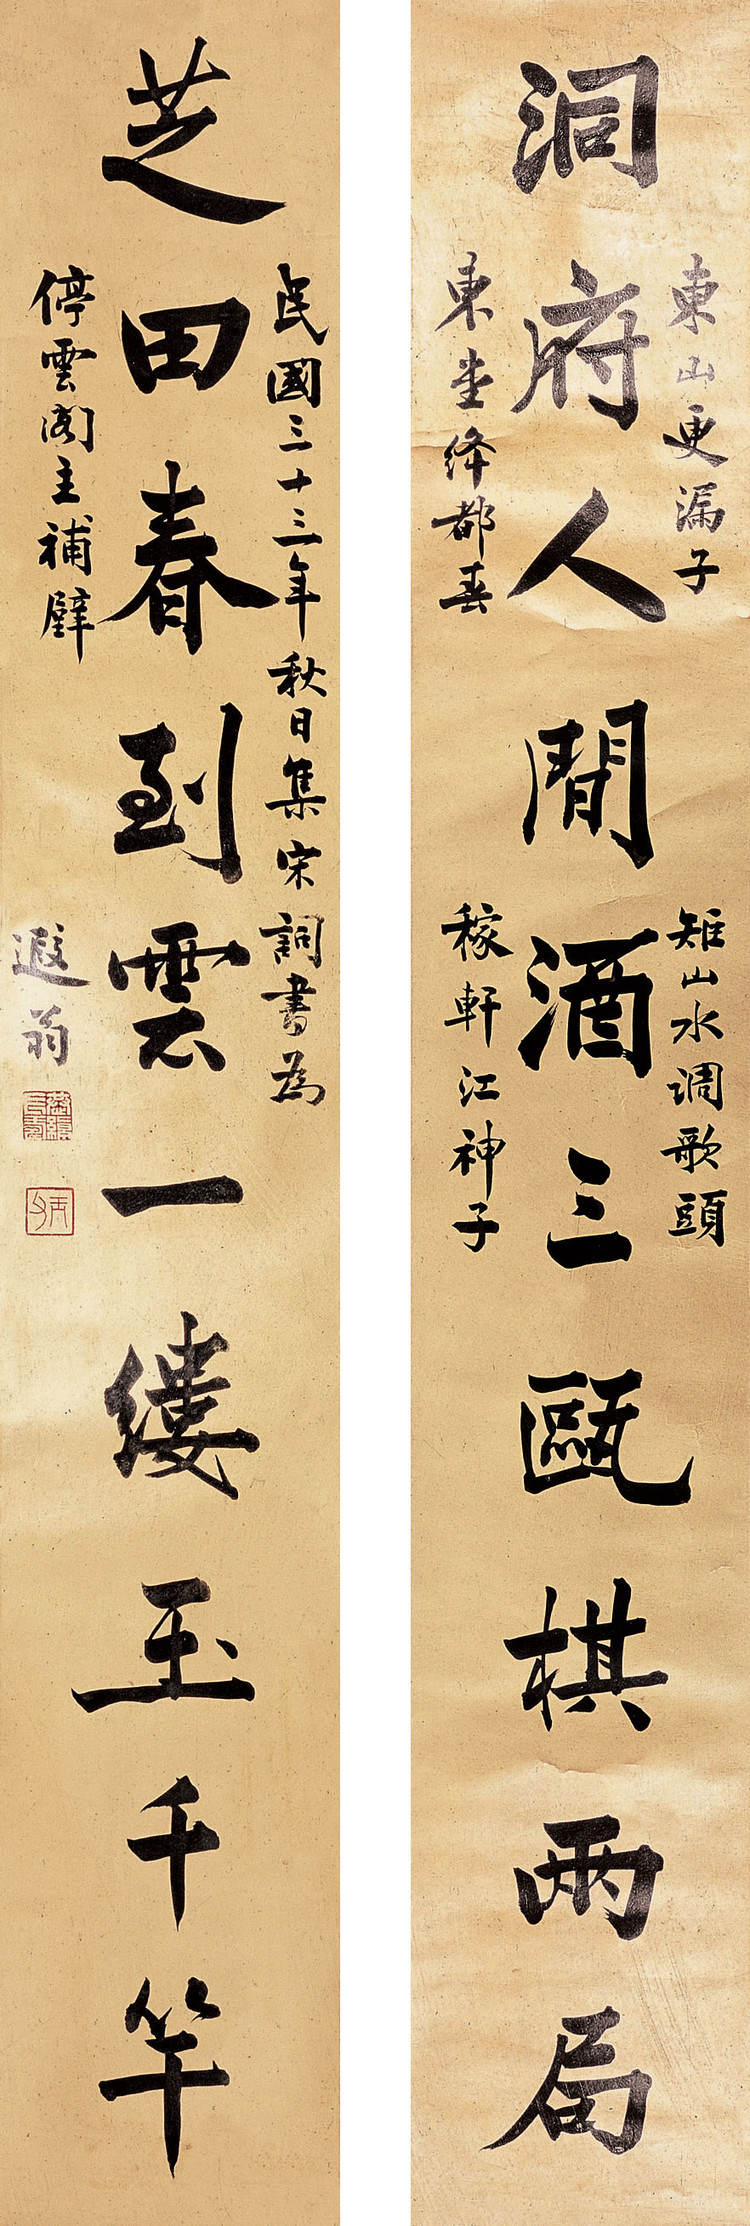 洞府人間酒三甌棋兩局
東山更漏子
雉山水調歌頭
東堂絳都春
稼軒江神子
芝田春到雲一縷玉千竿
民國三十三年秋日集宋詞書為
停雲閣主補壁
遐翁